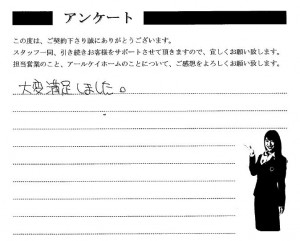 アンケート
この度は、ご契約下さり誠にありがとうございます。
スタッフ一同、引き続きお客様をサポートさせて頂きますので、宜しくお願い致します。
担当営業のこと、アールケイホームのことについて、ご感想をよろしくお願い致します。
大変満足しました。